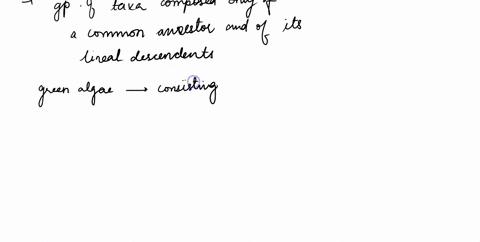 → gp. of taxa composed only of
a common ancestor and of its
lineal descendents
green algae → consisting